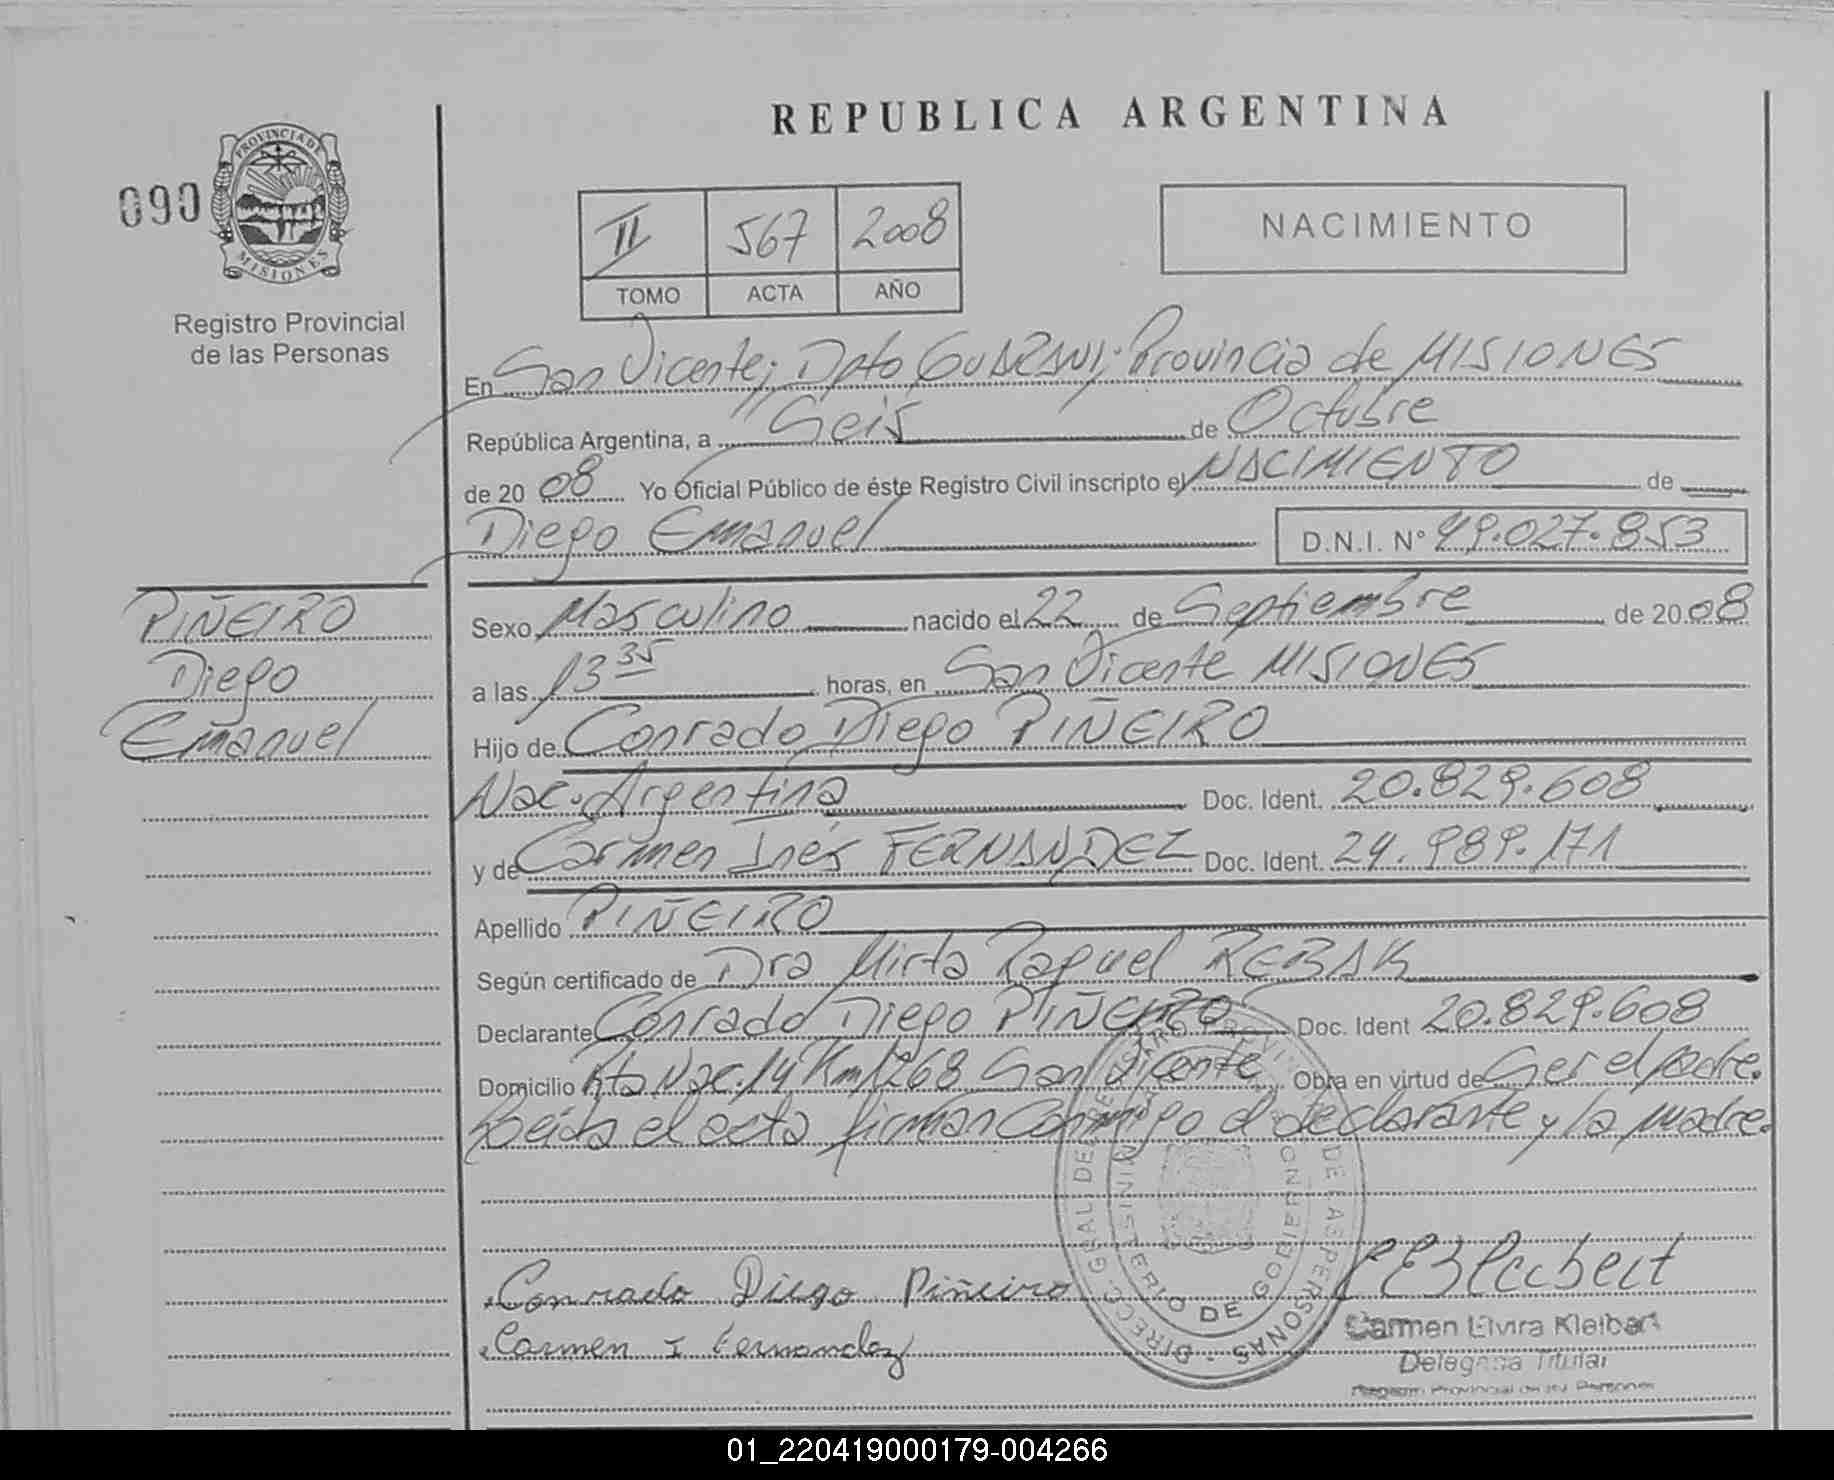 REPUBLICA ARGENTINA
090
PROVINCIA DE
MISIONES
Registro Provincial
de las Personas
II 567 2008
TOMO ACTA AÑO
NACIMIENTO
En San Vicente; Dpto GUARANI; Provincia de MISIONES
República Argentina, a Seis de Octubre
de 2008 Yo Oficial Público de éste Registro Civil inscripto el NACIMIENTO de
Diego Emanuel D.N.I. N° 49.027.853
PIÑEIRO
Diego
Emanuel
Sexo Masculino nacido el 22 de Septiembre de 2008
a las 13 35 horas, en San Vicente MISIONES
Hijo de Conrado Diego PIÑEIRO
Nac. Argentina Doc. Ident. 20.829.608
y de Carmen Inés FERNANDEZ Doc. Ident. 24.989.171
Apellido PIÑEIRO
Según certificado de Dra Mirta Raquel REBAK
Declarante Conrado Diego PIÑEIRO Doc. Ident 20.829.608
Domicilio Rta Nac. 14 Km 1268 San Vicente Obra en virtud de Ser el padre.
Leída el acta firman conmigo el declarante y la madre.
Conrado Diego Piñeiro
Carmen I Fernandez
DE LAS PERSONAS - DIRECC. GRAL DE
MINISTERIO DE GOBIERNO
Carmen Elvira Kleibert
Delegada Titular
Registro Provincial de las Personas
01_220419000179-004266